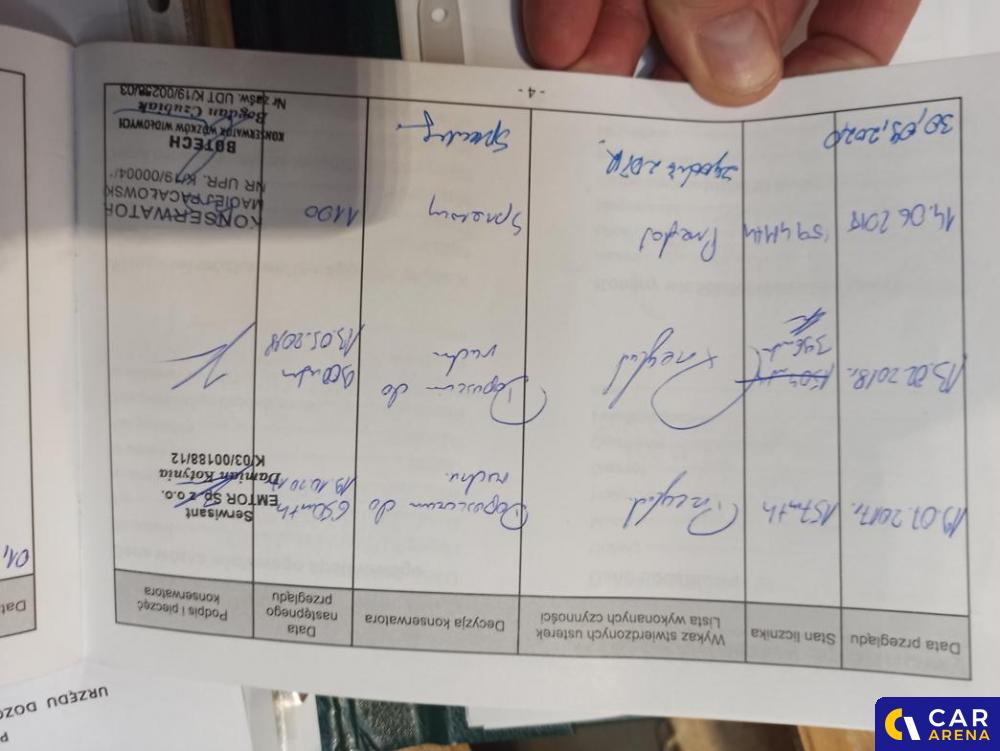 Data przeglądu
Stan licznika
Wykaz stwierdzonych usterek
Lista wykonanych czynności
Decyzja konserwatora
Data
następnego
przeglądu
Podpis i pieczęć
konserwatora
157mth
Przegląd
Dopuszczam do
ruchu
650mth
Serwisant
EMTOR Sp. z o.o.
Damian Kotynia
K/03/00188/12
13.02.2018r.
346mth
Przegląd
Dopuszczam do
ruchu
13.05.2018
14.06 2019
594Mth
Przegląd
Sprawny
1100
KONSERWATOR
NR UPR. K/19/00004/
30,09,2020
zgodnie z DTR.
Sprawny
BOTECH
KONSERWATOR WÓZKÓW WIDŁOWYCH
Bogdan Czubiak
Nr zaśw. UDT K/19/00258/03
- 4 -
01,
Dat
URZĘDU DOZO
P
CAR
ARENA